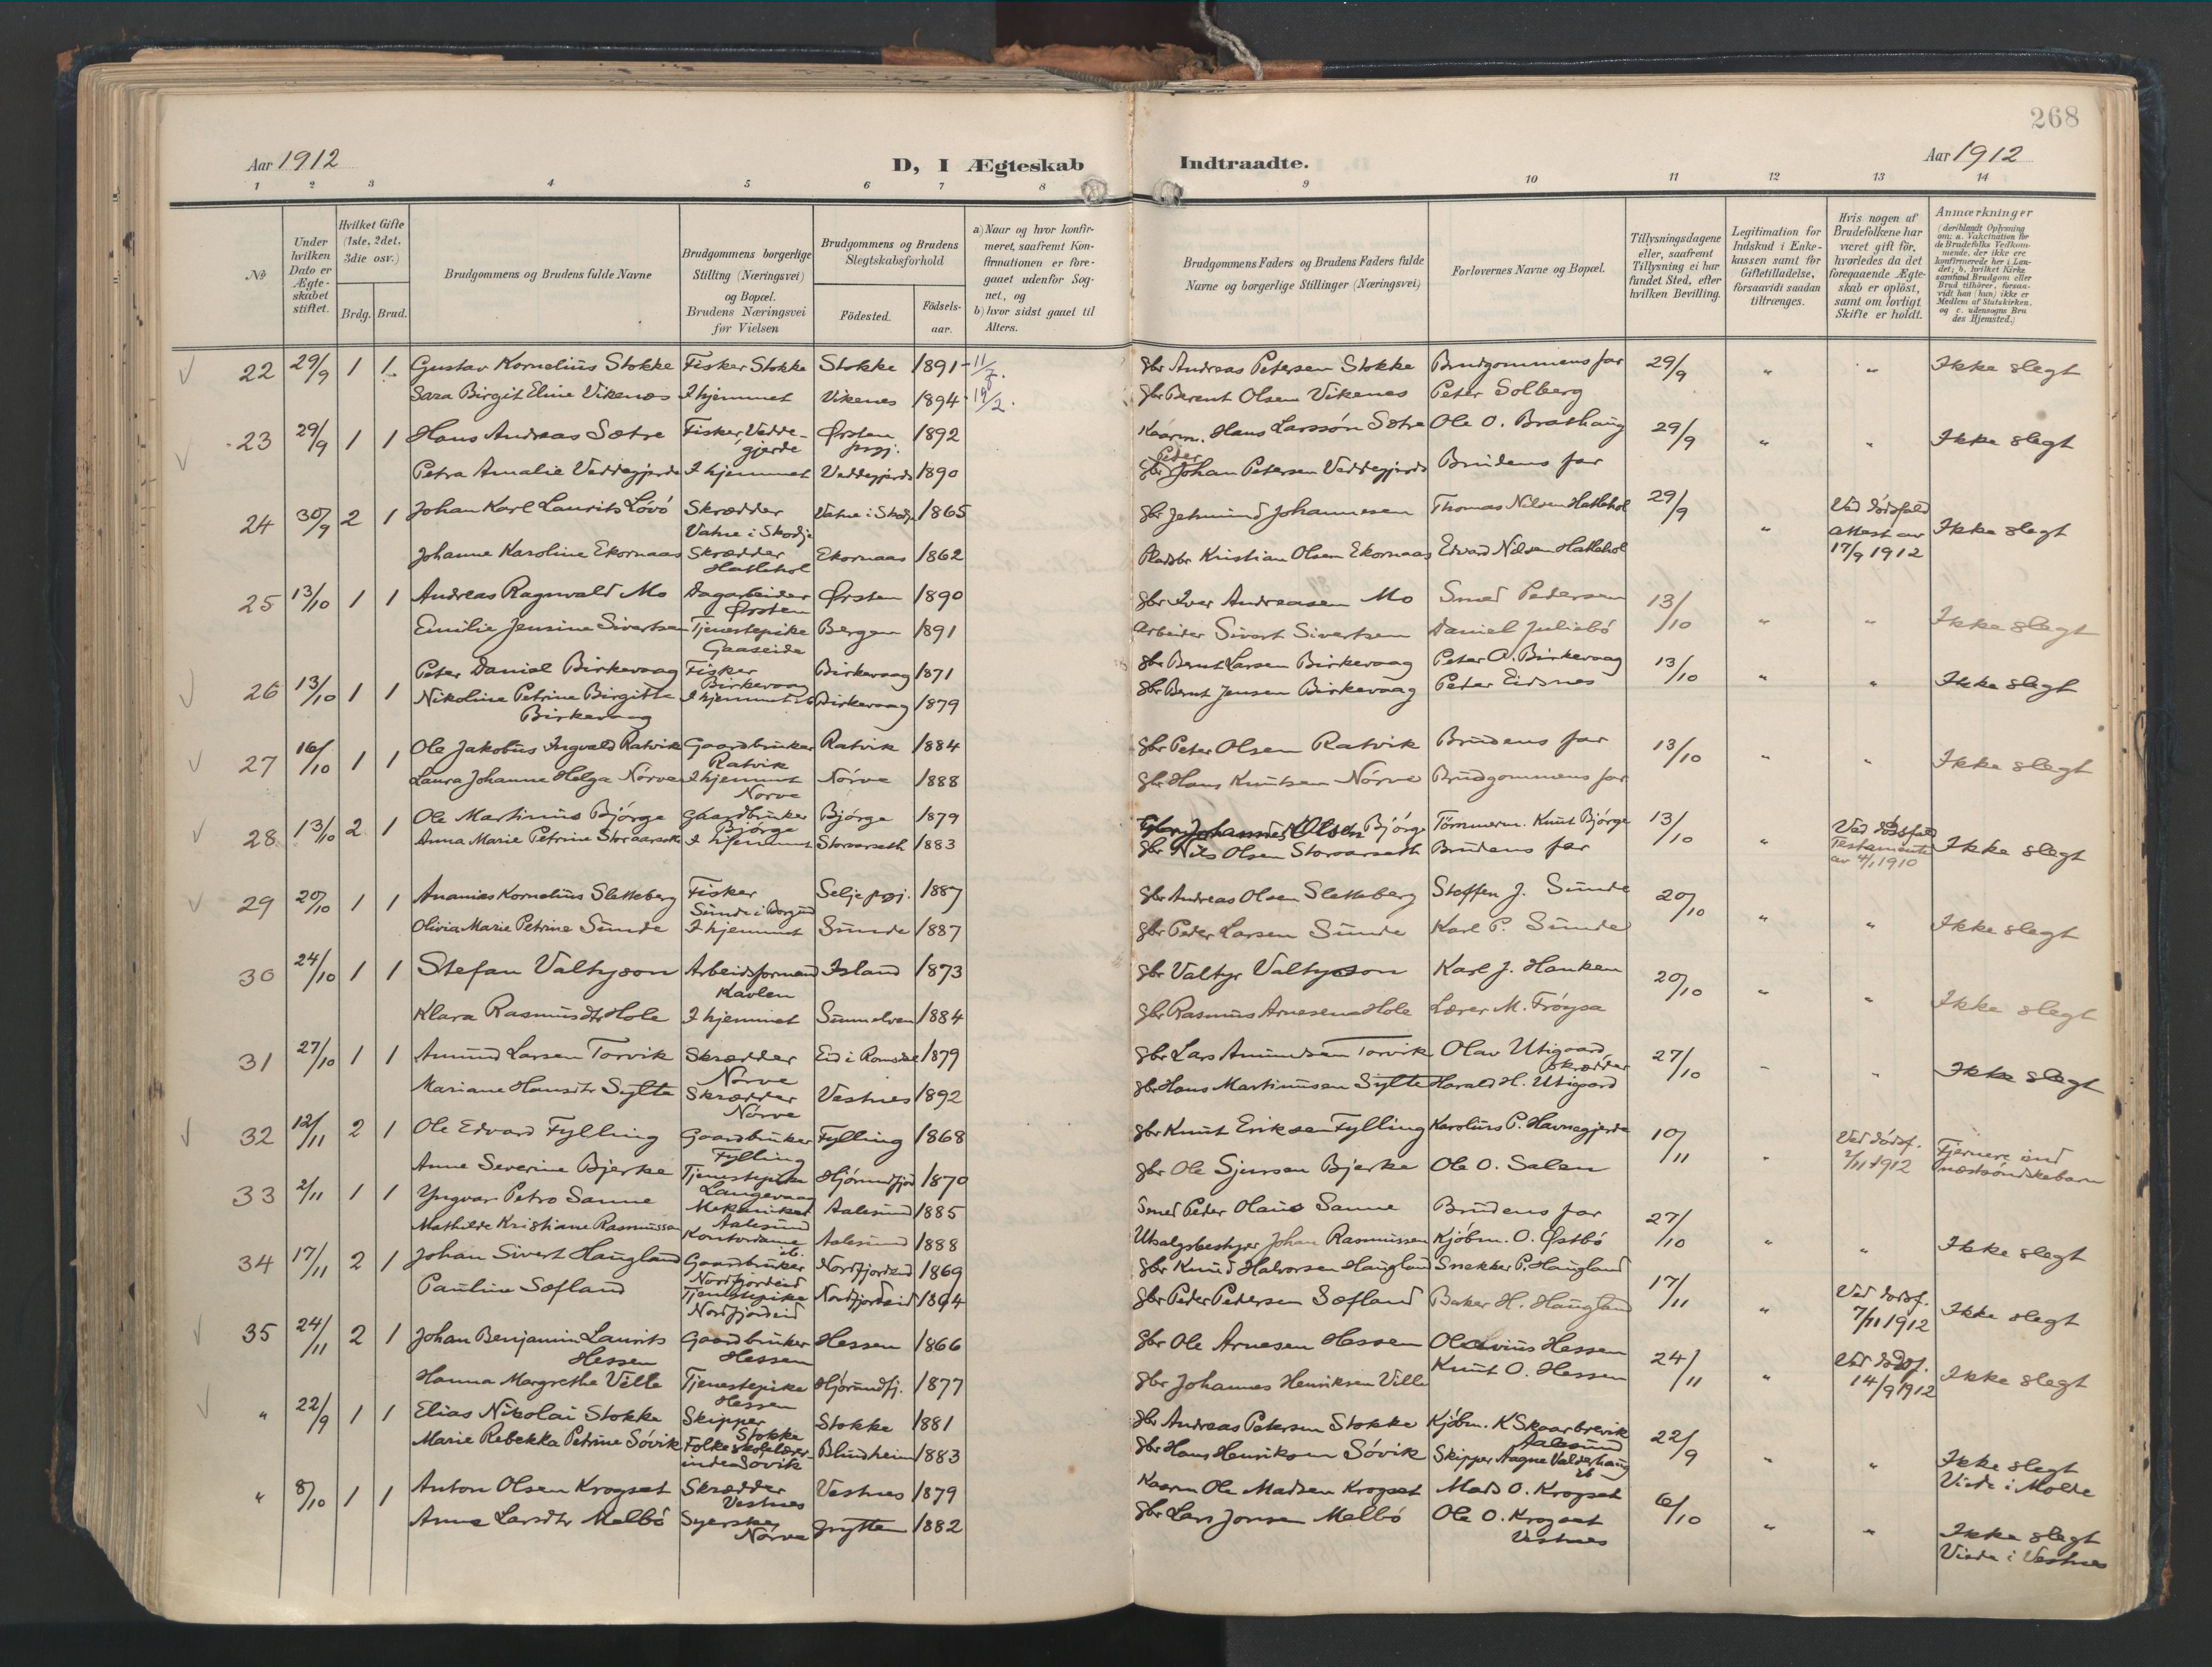 268
Aar 1912 D, I Ægteskab Indtraadte. Aar 1912
1 2 3 4 5 6 7 8 9 10 11 12 13 14
No
Under hvilken Dato er Ægte-skabet stiftet.
Hvilket Gifte (1ste, 2det, 3die osv.)
Brdg. Brud.
Brudgommens og Brudens fulde Navne
Brudgommens borgerlige Stilling (Næringsvei) og Bopæl. Brudens Næringsvei før Vielsen
Brudgommens og Brudens Slegtskabsforhold
Födested. Födsels-aar.
a) Naar og hvor konfir-meret, saafremt Kon-firmationen er fore-gaaet udenför Sog-net, og
b) hvor sidst gaaet til Alters.
Brudgommens Faders og Brudens Faders fulde Navne og borgerlige Stillinger (Næringsvei)
Forlovernes Navne og Bopæl.
Tillysningsdagene eller, saafremt Tillysning ei har fundet Sted, efter hvilken Bevilling.
Legitimation for Indskud i Enke-kassen samt for Giftetilladelse, forsaavidt saadan tiltrænges.
Hvis nogen af Brudefolkene har været gift før, hvorledes da det foregaaende Ægte-skab er oplöst, samt om lovligt Skifte er holdt.
Anmærkninger (deriblandt Oplysning om: a. Vakcination for de Brudefolks Vedkom-mende, der ikke ere konfirmerede her i Lan-det; b. hvilket Kirke samfund Brudgom eller Brud tilhörer, forsaa-vidt han (hun) ikke er Medlem af Statskirken, og c. udensogns Bru des Hjemsted.)
22 29/9 1 1 Gustav Kornelius Stokke Fisker Stokke Stokke 1891 11/7. gbr Andreas Petersen Stokke Brudgommens far 29/9 " " Ikke slegt
Sara Birgit Eline Vikenes I hjemmet Vikenes 1894 19/2. gbr Berent Olsen Vikenes Peter Solberg
23 29/9 1 1 Hans Andreas Sætre Fisker Vedde-gjerde Ørsten prgj. 1892 Kaarm. Hans Larssön Sætre Ole O. Brathaug 29/9 " " Ikke slegt
Petra Amalie Veddegjerde I hjemmet Veddegjerde 1890 gbr Peder Johan Petersen Veddegjerde Brudens far
24 30/9 2 1 Johan Karl Laurits Lövö Skrædder Vatne i Skodje Vatne i Skodje 1865 gbr Jetmund Johannesen Thomas Nilsen Hatlehol 29/9 " Ved dödsfald Attest av 17/9 1912 Ikke slegt
Johanne Karoline Ekornaas Skrædder Hatlehol Ekornaas 1862 Pladsbr Kristian Olsen Ekornaas Edvard Nilsen Hatlehol
25 13/10 1 1 Andreas Ragnvald Mo Dagarbeider Ørsten Ørsten 1890 gbr Iver Andreasen Mo Smed Pedersen 13/10 " " Ikke slegt
Emilie Jensine Sivertsen Tjenestepike Gaaseide Bergen 1891 Arbeider Sivert Sivertsen Daniel Juliebö
26 13/10 1 1 Peter Daniel Birkevaag Fisker Birkevaag Birkevaag 1871 gbr Bernt Larsen Birkevaag Peter A. Birkevaag 13/10 " " Ikke slegt
Nikoline Petrine Birgitte Birkevaag I hjemmet ib Birkevaag 1879 gbr Bernt Jensen Birkevaag Peter Eidsnes
27 16/10 1 1 Ole Jakobus Ingvald Ratvik Gaardbruker Ratvik Ratvik 1884 gbr Peter Olsen Ratvik Brudens far 13/10 " " Ikke slegt
Laura Johanne Helga Nörve I hjemmet Nörve Nörve 1888 gbr Hans Knutsen Nörve Brudgommens far
28 13/10 2 1 Ole Martinius Björge Gaardbruker Björge Björge 1879 Johannes Olsen Björge Tömmerm. Knut Björge 13/10 " Ved dödsfald Testamente av 4/1 1910 Ikke slegt
Anna Marie Petrine Storaarseth I hjemmet Storaarseth 1883 gbr Nils Olsen Storaarseth Brudens far
29 20/10 1 1 Ananias Kornelius Sletteberg Fisker Sunde i Borgund Selje prgj. 1887 gbr Andreas Olsen Sletteberg Steffen J. Sunde 20/10 " " Ikke slegt
Olivia Marie Petrine Sunde I hjemmet Sunde 1887 gbr Peder Larsen Sunde Karl P. Sunde
30 24/10 1 1 Stefan Valtyson Arbeidsformand Kavlen Island 1873 gbr Valtyr Valtyson Karl J. Hanken 20/10 " " Ikke slegt
Klara Rasmusdtr Hole I hjemmet Sunnelven 1884 gbr Rasmus Arnesen Hole Lærer M. Fröysa
31 27/10 1 1 Amund Larsen Torvik Skrædder Nörve Eid i Romsdal 1879 gbr Lars Amundsen Torvik Olav Utigaard Skrædder 27/10 " " Ikke slegt
Mariane Hansdtr Sylte Skrædder Nörve Vestnes 1892 gbr Hans Martinusen Sylte Harald H. Utigaard
32 12/11 2 1 Ole Edvard Fylling Gaardbruker Fylling Fylling 1868 gbr Knut Eriksen Fylling Karolius P. Havnegjerde 10/11 " Ved dödsf. 2/11 1912 Fjernere end næstsöndskebarn
Anne Severine Bjerke Tjenestepike Langevaag Hjörundfjord 1870 gbr Ole Sjursen Bjerke Ole O. Salen
33 2/11 1 1 Yngvar Petro Sanne Mekaniker Aalesund Aalesund 1885 Smed Peder Olaus Sanne Brudens far 27/10 " " Ikke slegt
Mathilde Kristiane Rasmussen Kontordame ib. Aalesund 1888 Utsalgsbestyrer Johan Rasmussen Kjöbm. O. Østbö
34 17/11 2 1 Johan Sivert Haugland Gaardbruker Nordfjordeid Nordfjordeid 1869 gbr Knud Halvorsen Haugland Snekker P. Haugland 17/11 " Ved dödsf. 7/11 1912 Ikke slegt
Pauline Sæfland Tjenestepike Nordfjordeid Nordfjordeid 1894 gbr Peder Pedersen Sæfland Baker H. Haugland
35 24/11 2 1 Johan Benjamin Laurits Hessen Gaardbruker Hessen Hessen 1866 gbr Ole Arnesen Hessen Hessen 24/11 " Ved dödsf. 14/9 1912 Ikke slegt
Hanna Margrethe Ville Tjenestepike Hessen Hjörundfj. 1877 gbr Johannes Henriksen Ville Knut O. Hessen
" 22/9 1 1 Elias Nikolai Stokke Skipper Stokke Stokke 1881 gbr Andreas Petersen Stokke Kjöbm. K Skaarbrevik Aalesund 22/9 " " Ikke slegt Viede i Molde
Marie Rebekka Petrine Sövik Folkeskolelærer-inde Sövik Blindheim 1883 gbr Hans Henriksen Sövik Skipper Aagne Valderhaug ib
" 8/10 1 1 Anton Olsen Krogset Skrædder Vestnes Vestnes 1879 Kaarm Ole Madsen Krogset Mads O. Krogset 6/10 " " Ikke slegt Viede i Vestnes
Anne Larsdtr Melbö Syerske Nörve Grytten 1882 gbr Lars Jonsen Melbö Ole O. Krogset Vestnes